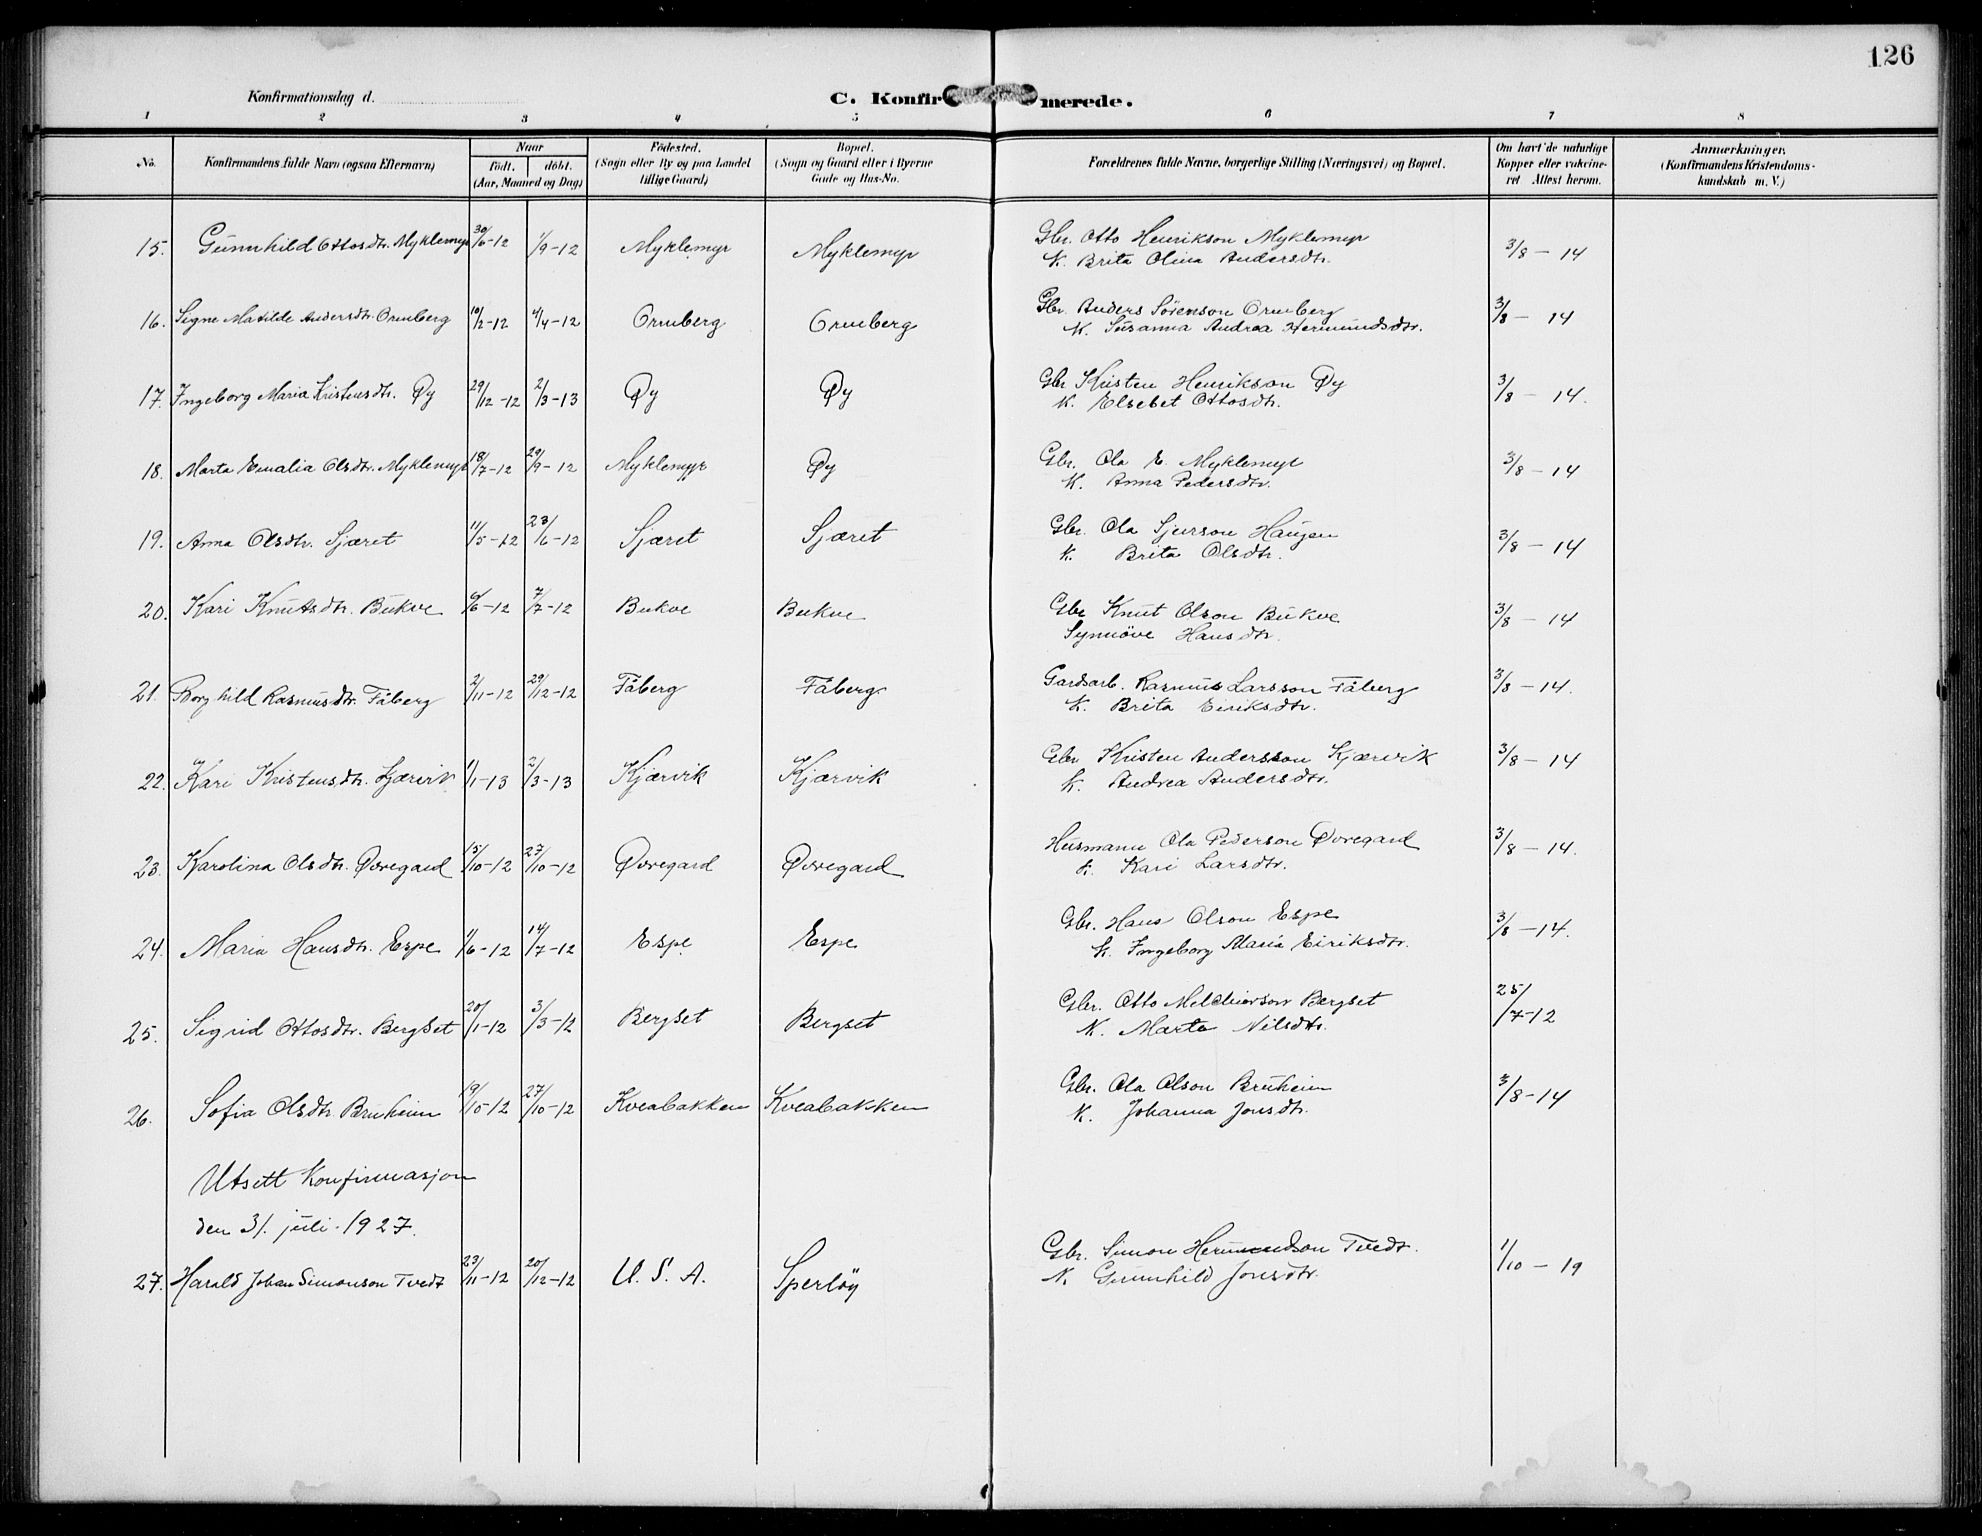 126
Konfirmationsdag d.
C. Konfirmerede.
1 2 3 4 5 6 7 8
No. Konfirmandens fulde Navn (ogsaa Efternavn) Naar født. døbt. (Aar, Maaned og Dag) Fødested. (Sogn eller By og paa Landet tillige Gaard) Bopæl. (Sogn og Gaard eller i Byerne Gade og Hus-No. Forældrenes fulde Navne, borgerlige Stilling (Næringsvei) og Bopæl. Om havt de naturlige Kopper eller vakcineret. Attest herom. Anmærkninger. (Konfirmandens Kristendomskundskab m. V.)
15. Gunnhild Ottosdtr. Myklemyr 30/6-12 1/9-12 Myklemyr Myklemyr Gbr. Otto Henrikson Myklemyr 3/8-14
K. Brita Olina Andersdtr.
16. Signe Matilde Andersdtr. Ormberg 10/2-12 4/4-12 Ormberg Ormberg Gbr. Anders Sörenson Ormberg 3/8-14
K. Susanna Andrea Hermundsdtr.
17. Ingeborg Maria Kristensdtr. Øy 29/12-12 2/3-13 Øy Øy Gbr Kristen Henrikson Øy 3/8-14.
K. Elsebet Ottosdtr.
18. Marta Emalia Olsdtr. Myklemyr 18/7-12 29/9-12 Myklemyr Øy Gbr. Ola E. Myklemyr 3/8-14
K. Anna Pedersdtr.
19. Anna Olsdtr. Sjæret 11/5-12 23/6-12 Sjæret Sjæret Gbr Ola Sjurson Haugen 3/8-14
K. Brita Olsdtr.
20. Kari Knutsdtr. Bukve 6/6-12 7/7-12 Bukve Bukve Gbr Knut Olson Bukve 3/8-14
Synnöve Hansdtr.
21. Borghild Rasmusdtr. Fåberg 2/11-12 29/12-12 Fåberg Fåberg Gardsarb. Rasmus Larsson Fåberg 3/8-14.
K. Brita Eiriksdtr.
22. Kari Kristensdtr. Kjærvik 1/1-13 2/3-13 Kjærvik Kjærvik Gbr Kristen Andersson Kjærvik 3/8-14
K. Andrea Andersdtr.
23. Karolina Olsdtr. Øvregard 15/10-12 27/10-12 Øvregard Øvregard Husmann Ola Pederson Øvregard 3/8-14.
K. Kari Larsdtr.
24. Maria Hansdtr. Espe 1/6-12 14/7-12 Espe Espe Gbr. Hans Olson Espe 3/8-14.
K. Ingeborg Maria Eiriksdtr.
25. Sigrid Ottosdtr. Bergset 20/1-12 3/3-12 Bergset Bergset Gbr. Otto Melchiorson Bergset 25/7-12
K. Marta Nilsdtr.
26. Sofia Olsdtr Bruheim 19/10-12 27/10-12 Kveabakken Kveabakken Gbr. Ola Olson Bruheim 3/8-14
K. Johanna Jonsdtr.
Utsett Konfirmasjon
den 31. juli 1927.
27. Harald Johan Simonson Tvedt 23/11-12 20/12-12 U.S.A. Sperløy Gbr. Simon Hermundson Tvedt. 1/10-19
K. Gunnhild Jonsdtr.